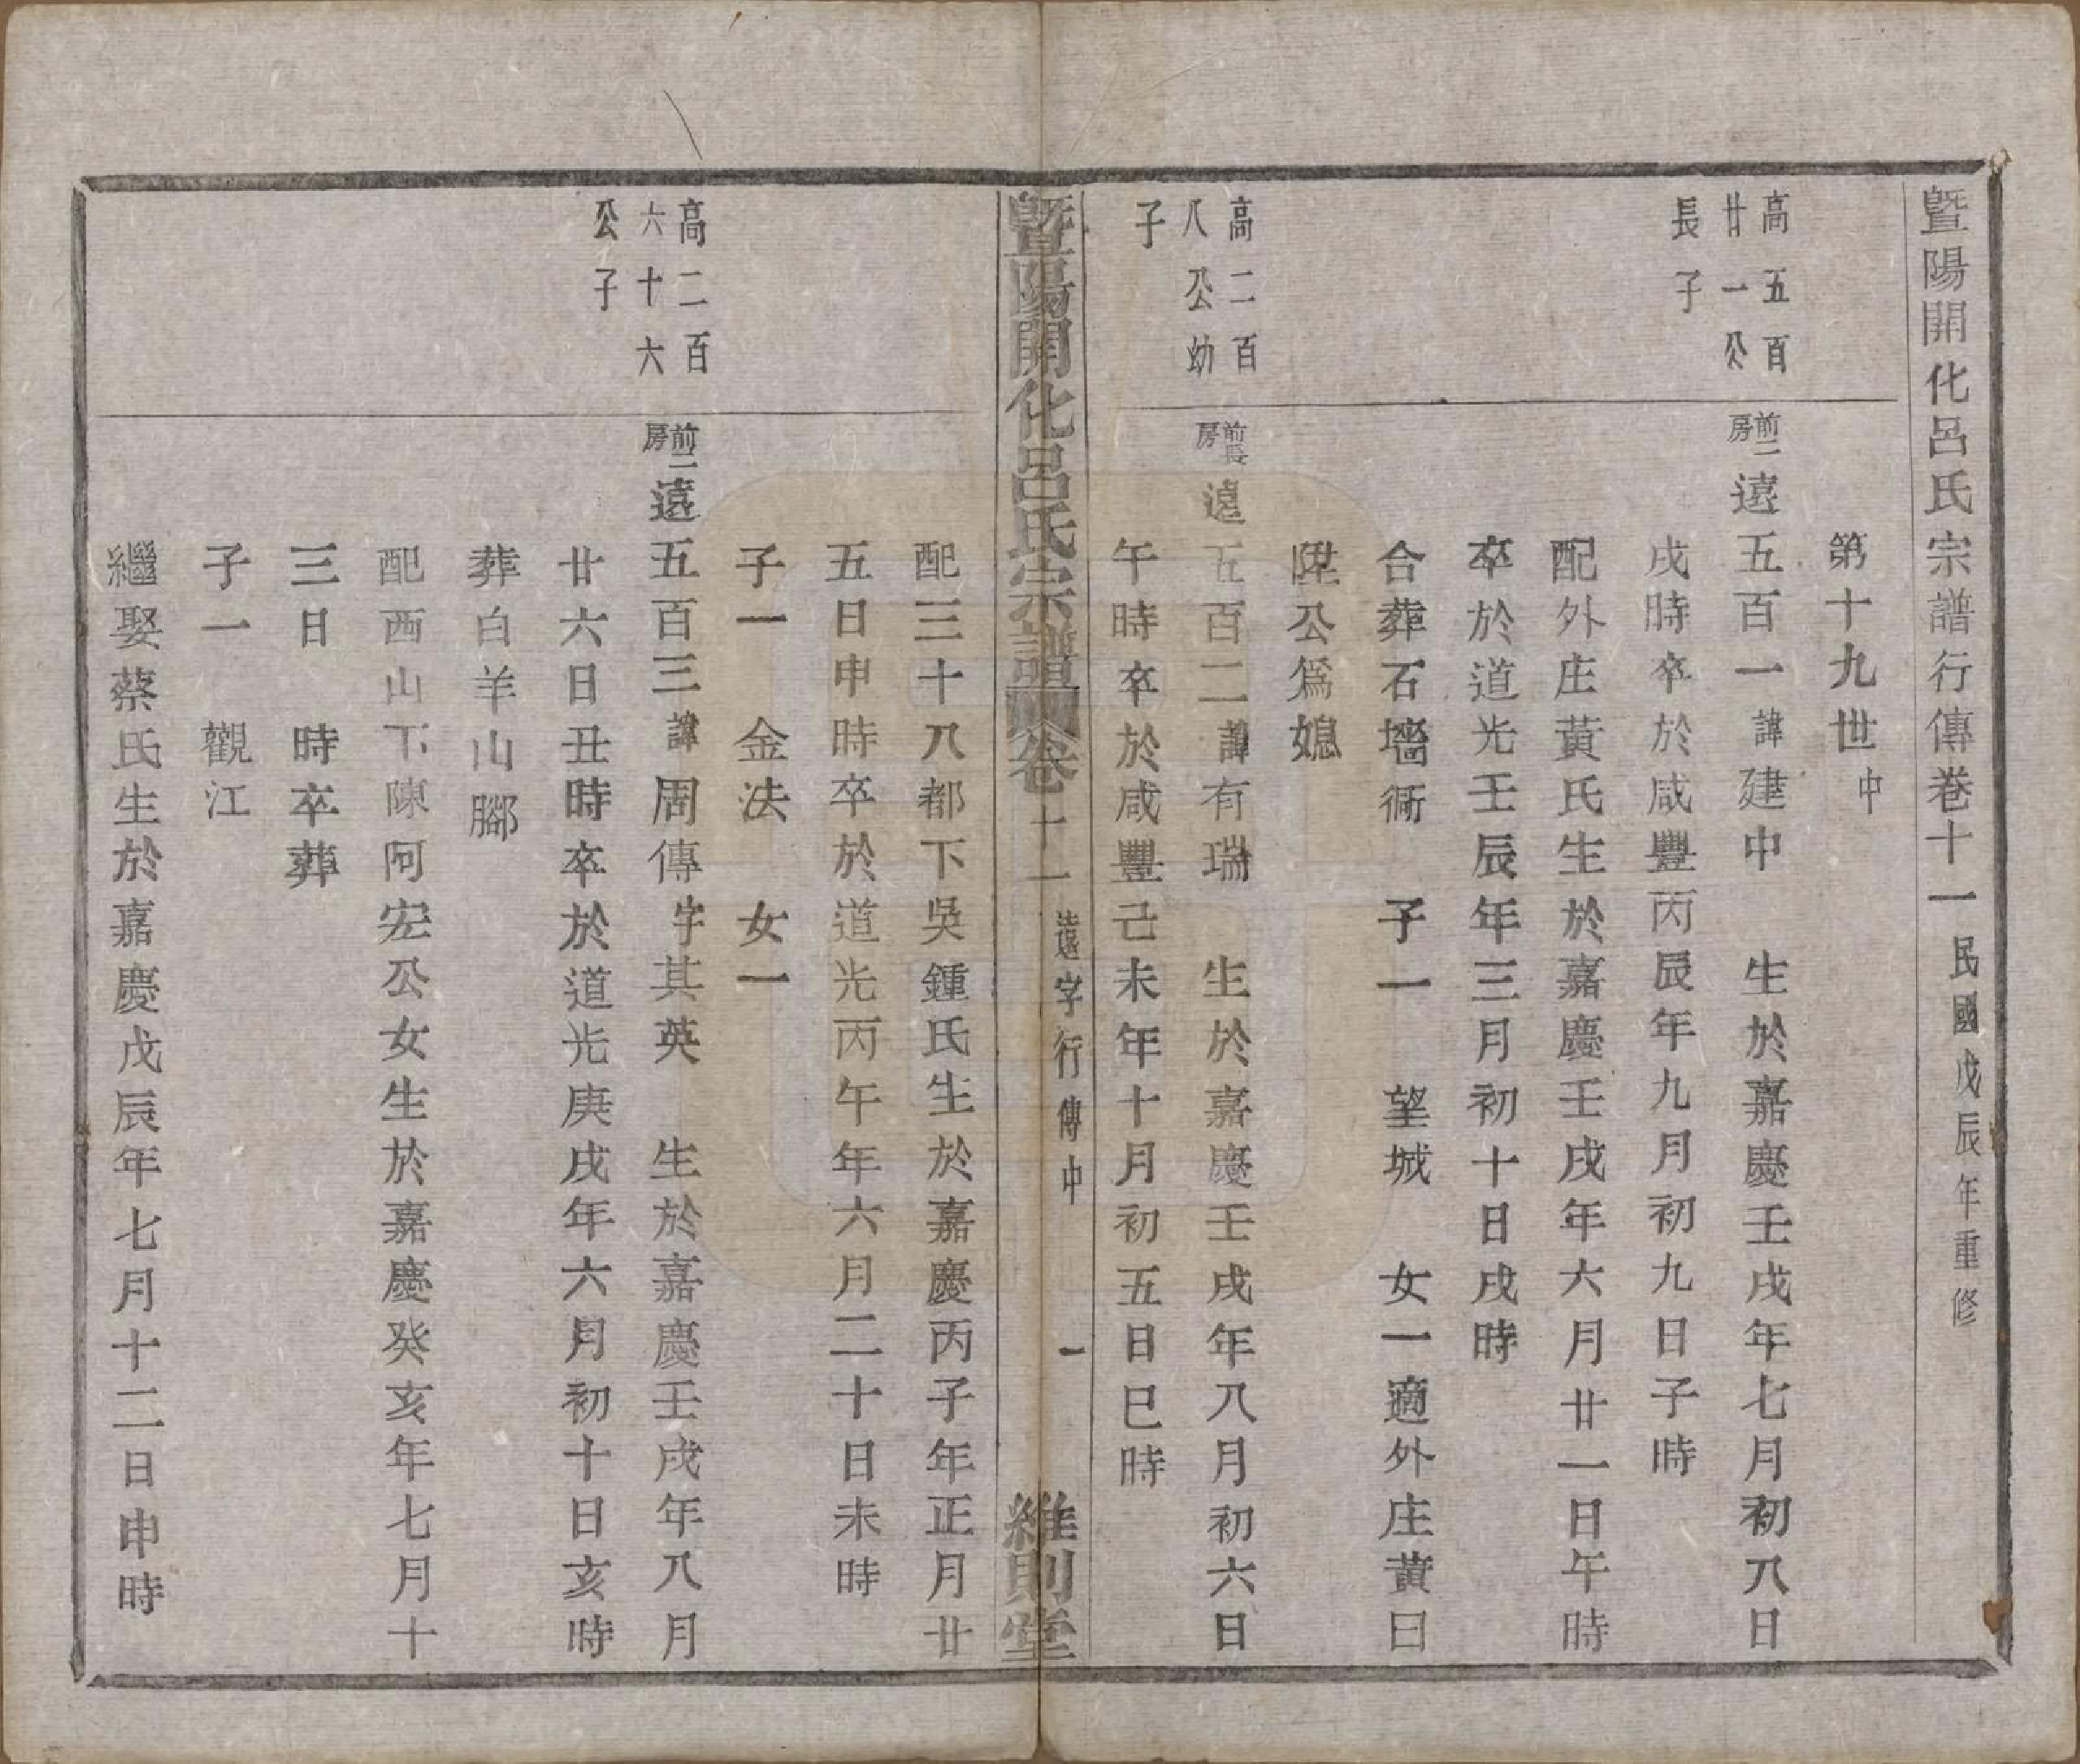 暨陽開化呂氏宗譜行傳卷十一民國戊辰年重修
第十九世中
高五百
廿一公
長子
前二房遠五百一諱建中 生於嘉慶壬戌年七月初八日
戌時卒於咸豐丙辰年九月初九日子時
配外庄黃氏生於嘉慶壬戌年六月廿一日午時
卒於道光壬辰年三月初十日戌時
合葬石墻衕 子一 望城 女一適外庄黃曰
陞公爲媳
高二百
八公幼
子
前長房遠五百二諱有瑞 生於嘉慶壬戌年八月初六日
午時卒於咸豐己未年十月初五日巳時
暨陽開化呂氏宗譜卷十一 遠字行傳中 一 維則堂
配三十八都下吳鍾氏生於嘉慶丙子年正月廿
五日申時卒於道光丙午年六月二十日未時
子一 金法 女一
高二百
六十六
公子
前二房遠五百三諱周傳字其英 生於嘉慶壬戌年八月
廿六日丑時卒於道光庚戌年六月初十日亥時
葬白羊山腳
配西山下陳阿宏公女生於嘉慶癸亥年七月十
三日 時卒葬
子一 觀江
繼娶蔡氏生於嘉慶戊辰年七月十二日申時